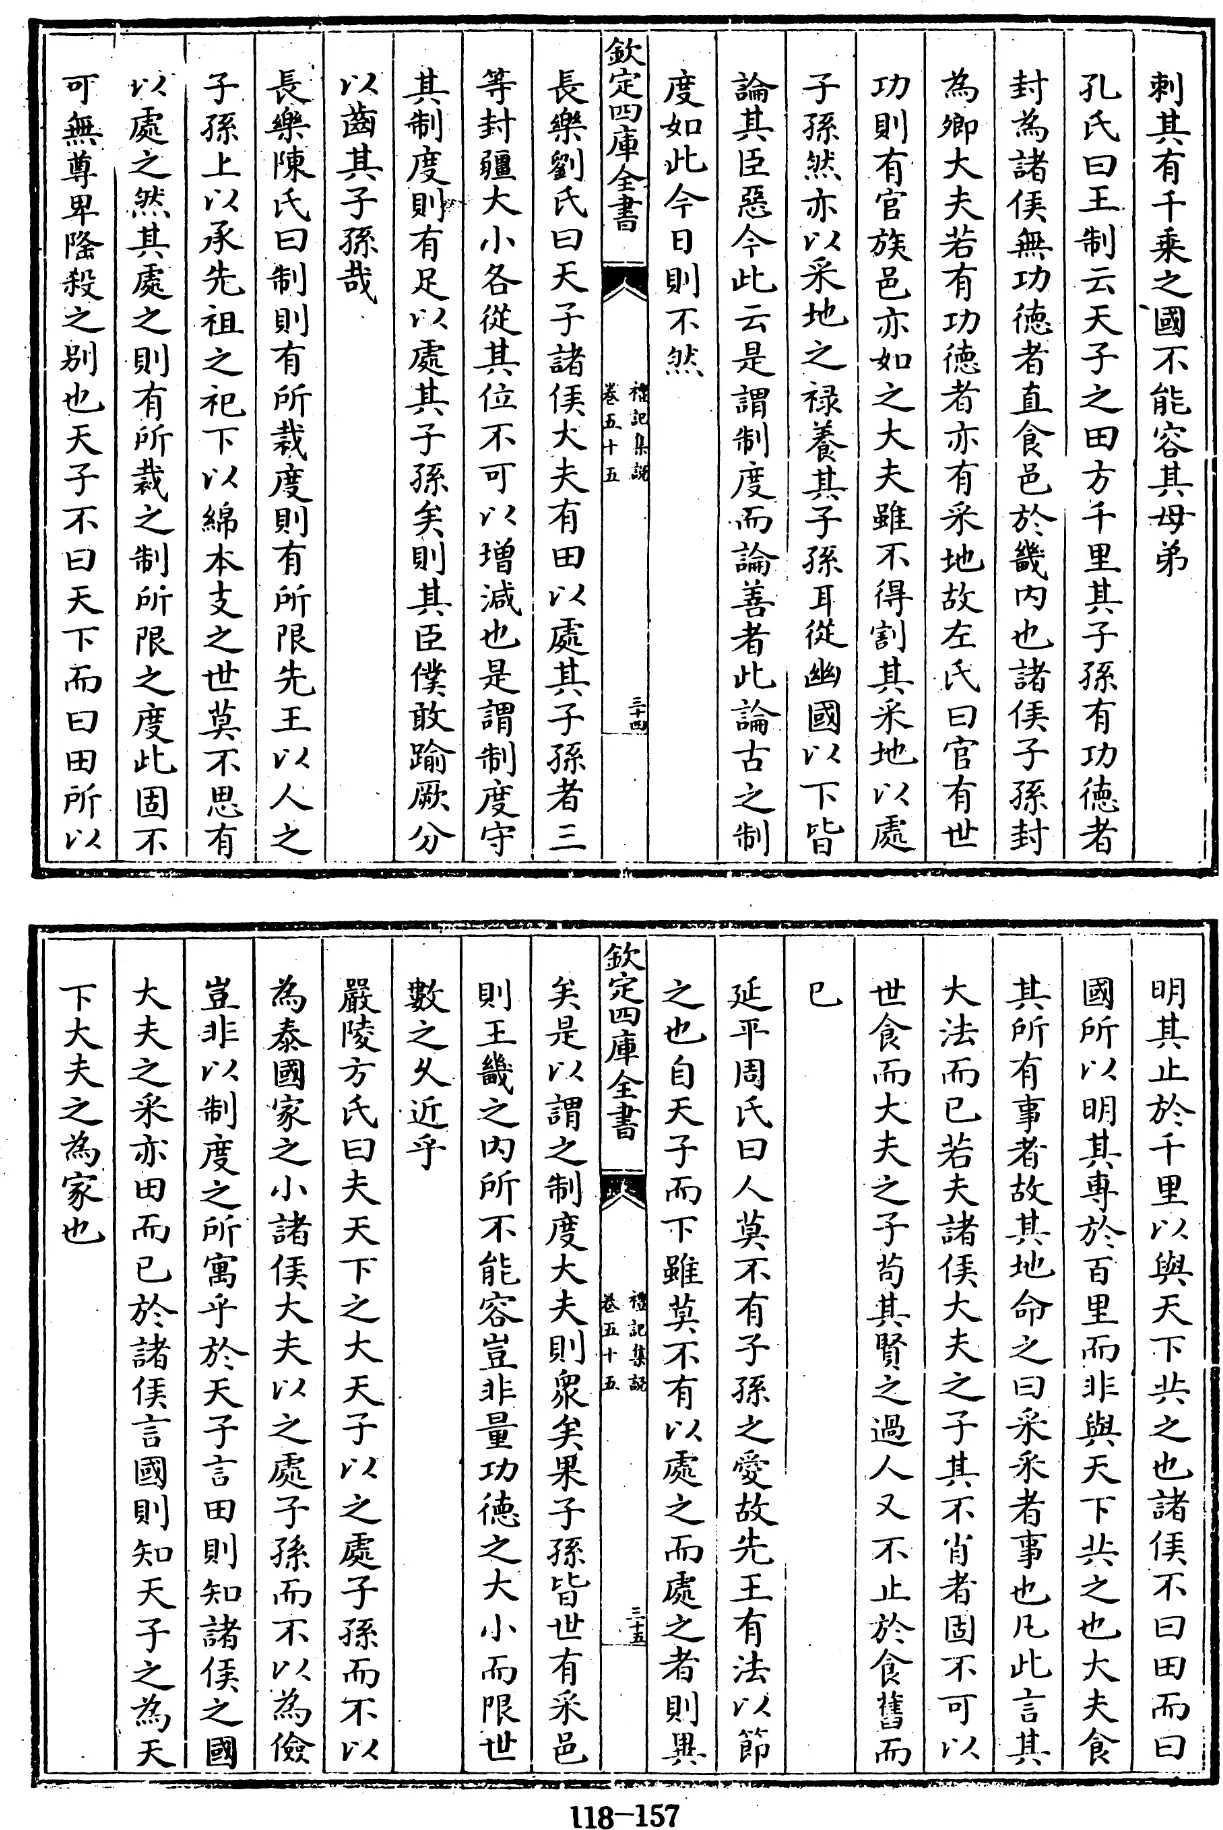 刺其有千乘之國不能容其母弟
孔氏曰王制云天子之田方千里其子孫有功徳者
封為諸侯無功徳者直食邑於畿内也諸侯子孫封
為卿大夫若有功徳者亦有采地故左氏曰官有世
功則有官族邑亦如之大夫雖不得割其采地以處
子孫然亦以采地之禄養其子孫耳從幽國以下皆
論其臣惡今此云是謂制度而論善者此論古之制
度如此今日則不然
欽定四庫全書
禮記集說
卷五十五
三十四
長樂劉氏曰天子諸侯大夫有田以處其子孫者三
等封疆大小各從其位不可以增減也是謂制度守
其制度則有足以處其子孫矣則其臣僕敢踰厥分
以齒其子孫哉
長樂陳氏曰制則有所裁度則有所限先王以人之
子孫上以承先祖之祀下以綿本支之世莫不思有
以處之然其處之則有所裁之制所限之度此固不
可無尊卑隆殺之别也天子不曰天下而曰田所以
明其止於千里以與天下共之也諸侯不曰田而曰
國所以明其專於百里而非與天下共之也大夫食
其所有事者故其地命之曰采采者事也凡此言其
大法而已若夫諸侯大夫之子其不肖者固不可以
世食而大夫之子苟其賢之過人又不止於食舊而
已
延平周氏曰人莫不有子孫之愛故先王有法以節
之也自天子而下雖莫不有以處之而處之者則異
欽定四庫全書
禮記集說
卷五十五
三十五
矣是以謂之制度大夫則衆矣果子孫皆世有采邑
則王畿之内所不能容豈非量功徳之大小而限世
數之久近乎
嚴陵方氏曰夫天下之大天子以之處子孫而不以
為泰國家之小諸侯大夫以之處子孫而不以為儉
豈非以制度之所寓乎於天子言田則知諸侯之國
大夫之采亦田而已於諸侯言國則知天子之為天
下大夫之為家也
118-157